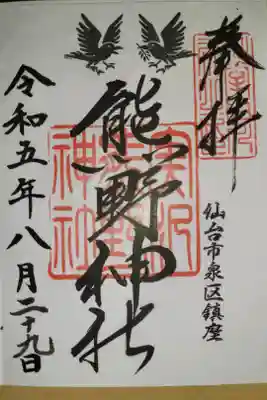 奉拝
仙台市泉区鎮座
熊野神社
令和五年八月二十九日